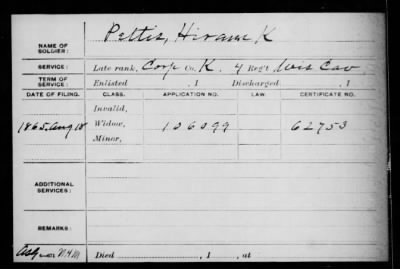 Pettis, Hiram K
NAME OF SOLDIER:
SERVICE: Late rank, Corp Co. K, 4 Reg't Wis Cav
TERM OF SERVICE: Enlisted , 1 Discharged , 1
DATE OF FILING. CLASS. APPLICATION NO. LAW. CERTIFICATE NO.
Invalid,
1865, Aug 18 Widow, 106099 62753
Minor,
ADDITIONAL SERVICES:
REMARKS:
Died , 1 , at